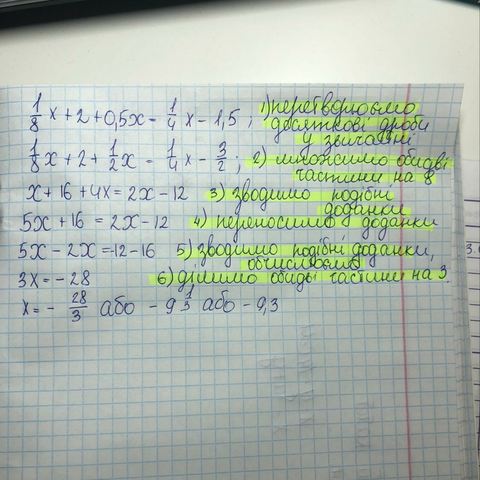 1/8 x + 2 + 0,5x = 1/4 x - 1,5 ; 1) перетворюємо
десяткові дроби
у звичайні
1/8 x + 2 + 1/2 x = 1/4 x - 3/2 ; 2) множимо обидві
частини на 8
x + 16 + 4x = 2x - 12 3) зводимо подібні
доданки
5x + 16 = 2x - 12 4) переносимо доданки
5x - 2x = -12 - 16 5) зводимо подібні доданки,
обчислюємо
3x = - 28 6) ділимо обидві частини на 3.
x = - 28/3 або - 9 1/3 або - 9,3
3.